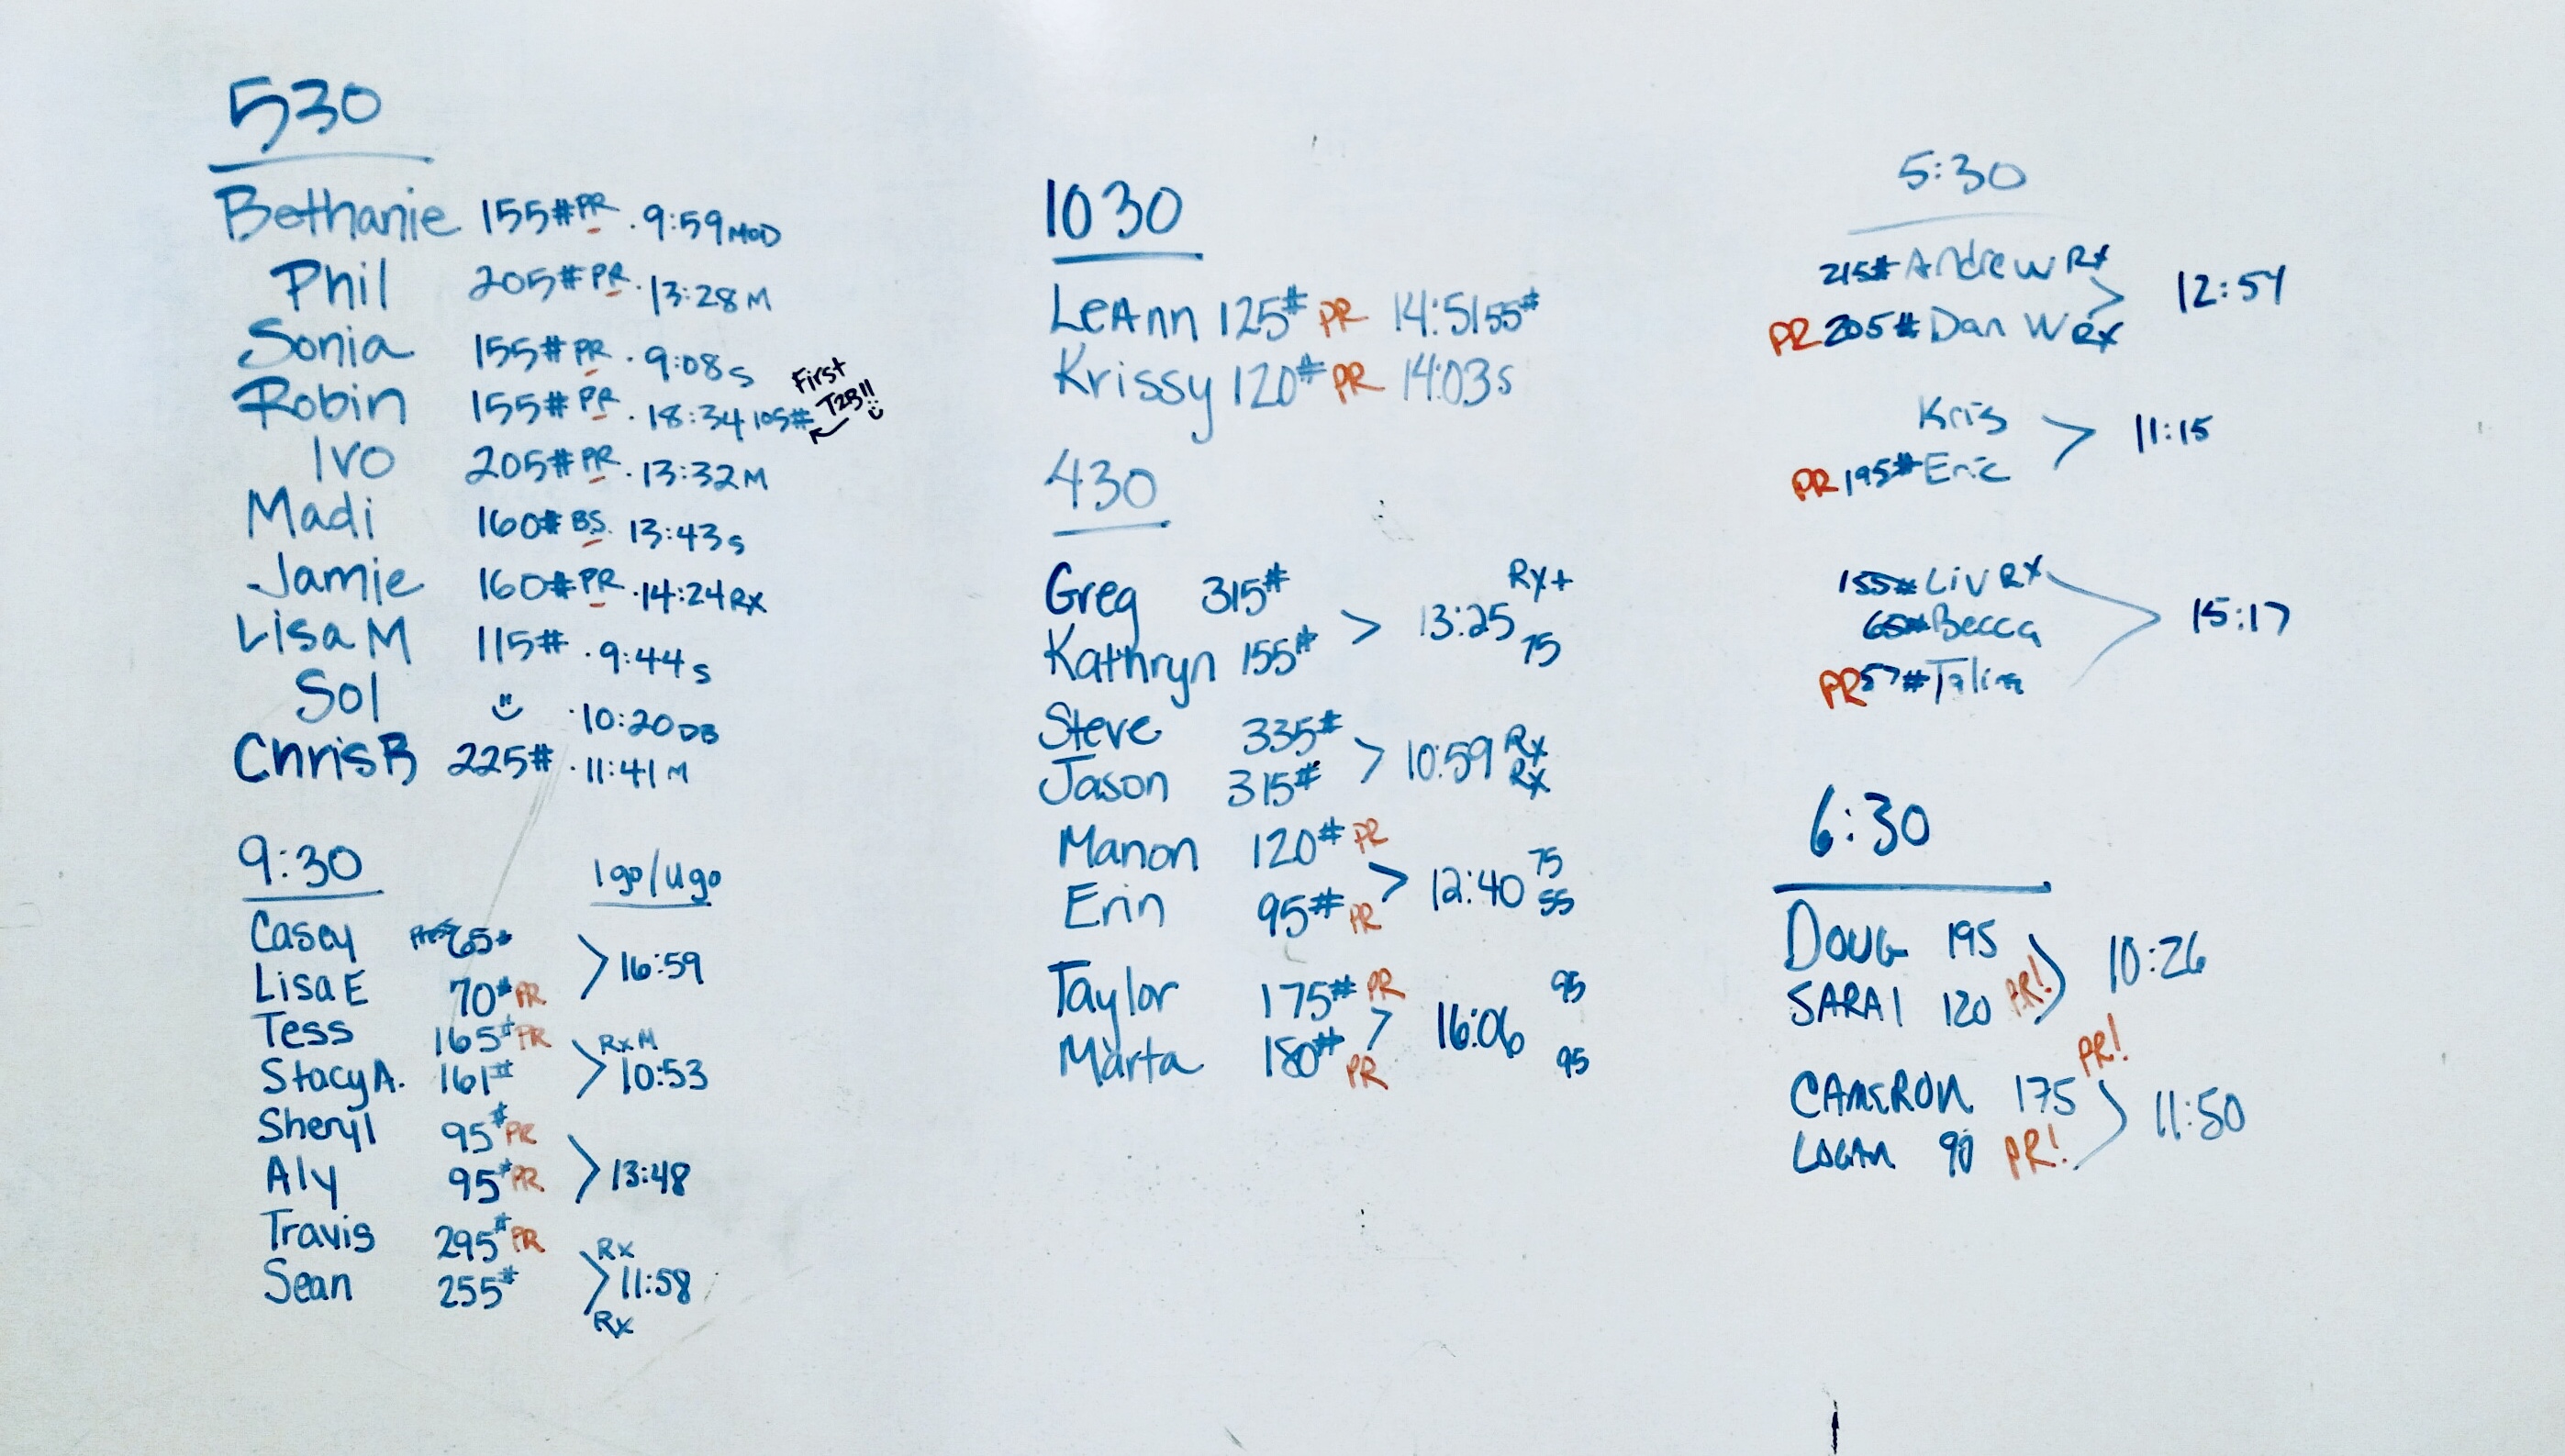 530
Bethanie 155# PR . 9:59 MOD
Phil 205# PR . 13:28 M
Sonia 155# PR . 9:08 s
Robin 155# PR . 18:34 105# First T2B!!
Ivo 205# PR . 13:32 M
Madi 160# BS 13:43 s
Jamie 160# PR . 14:24 Rx
Lisa M 115# . 9:44 s
Sol . 10:20 DB
Chris B 225# . 11:41 M
9:30 Igo/Ugo
Casey 65#
Lisa E 70# PR > 16:59
Tess 165# PR
Stacy A. 161# > RxM 10:53
Sheryl 95# PR
Aly 95# PR > 13:48
Travis 295# PR Rx
Sean 255# > 11:58 Rx
1030
LeAnn 125# PR 14:51 55#
Krissy 120# PR 14:03 s
430
Greg 315# Rx+
Kathryn 155# > 13:25 75
Steve 335# Rx
Jason 315# > 10:59 Rx
Manon 120# PR 75
Erin 95# PR > 12:40 55
Taylor 175# PR 95
Marta 180# PR > 16:06 95
5:30
215# Andrew Rx
PR 205# Dan W Rx > 12:57
Kris
PR 195# Eric > 11:15
155# Liv RX
65# Becca > 15:17
PR 57#
6:30
DOUG 195
SARAI 120 PR! 10:26
CAMERON 175 PR!
LOGAN 90 PR! 11:50